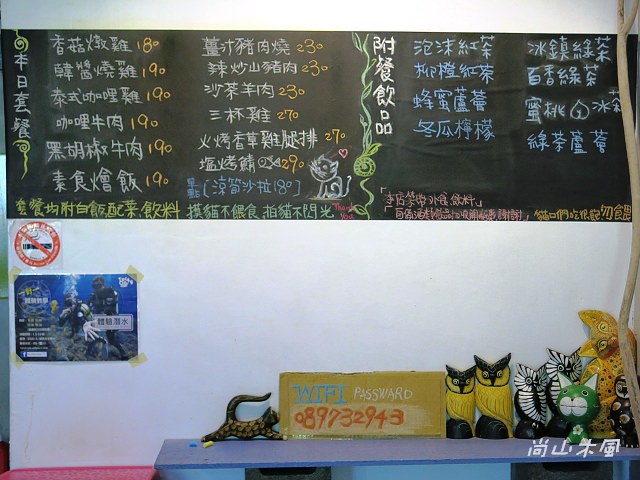 本日套餐
香菇燉雞 180
韓醬燒雞 190
泰式咖哩雞 190
咖哩牛肉 190
黑胡椒牛肉 190
素食燴飯 190
薑汁豬肉燒 230
辣炒山豬肉 230
沙茶羊肉 230
三杯雞 270
火烤香草雞腿排 270
塩烤鯖 290
[涼筍沙拉180]
套餐均附白飯.配菜.飲料 摸貓不餵食 拍貓不閃光
Thank You
附餐飲品
泡沫紅茶
柳橙紅茶
蜂蜜蘆薈
冬瓜檸檬
冰鎮綠茶
百香綠茶
蜜桃 冰茶
綠茶蘆薈
「本店禁帶外食.飲料」
謝謝」
體驗潛水
WIFI PASSWARD
089732943
尚山木風